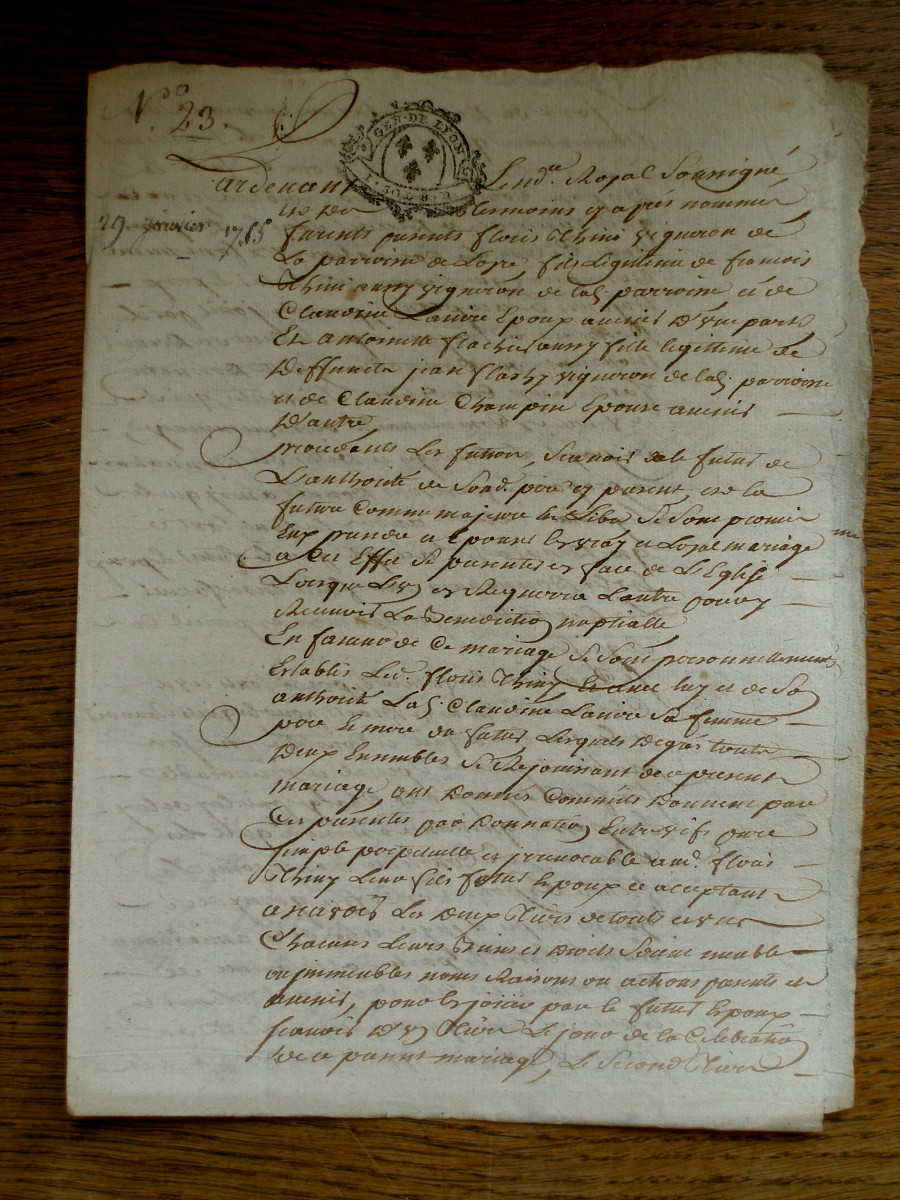 N.° 23.
GEN. DE LYON
29 janvier 1755
Pardevant Le nd.re Royal Soussigné
temoins cy apres nommés
furents presents Floris Thini vigneron de
La parroisse de Loyre, fils Legitime de francois
Thini aussy vigneron de lad. parroisse et de
Claudine Lavire Epoux avenir D'une part
Et antoinette flachy aussy fille legittime de
Deffunct jean flachy vigneron de lad. parroisse
et de Claudine Champin Epouse avenir
D'autre
procedants Les futurs, scavoir led. futur de
L'authorité de Sond. pere cy present, et la
future Comme majeure et Libre Se Sont promis
Eux prendre et Epouser en vray et Loyal mariage
a Cet Effet Se presenter en face de L'Eglise
Lorsque L'un en Requerra L'autre pour y
Recevoir La Benediction nuptialle
En faveur de Ce mariage Se Sont personnellement
Establis Led. Thiny et avec luy et de Sa
authorité Lad. Claudine Lavire Sa femme
pere et mere du futur Lesquels De gré touts
Deux Ensembles Se Rejouissant de ce present
mariage ont Donnés Comme ils Donnent par
Ces presentes par Donnation Entre vifs pure
simple perpetuelle et irrevocable aud. Floris
Thiny Leur fils futur Epoux ce acceptant
a scavoir Les Deux Tiers de touts et un
Chacuns Leurs Biens et Droits Soient meubles
ou immeubles noms Raisons ou actions presents et
avenir, pour en jouir par le futur Epoux
scavoir D'un Tiers Le jour de la Celebration
de ce present mariage, Le Second Tiers